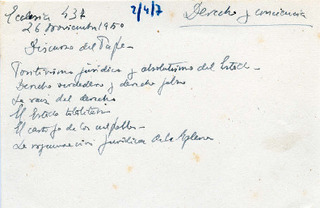 Ecclesia 437
2/4/7
Derecho y conciencia
26 Noviembre 1950
Discurso del Papa
Positivismo jurídico y absolutismo del Estado
Derecho verdadero y derecho falso
La raíz del derecho
El Estado totalitario
El castigo de los culpables
La organización jurídica de la Iglesia